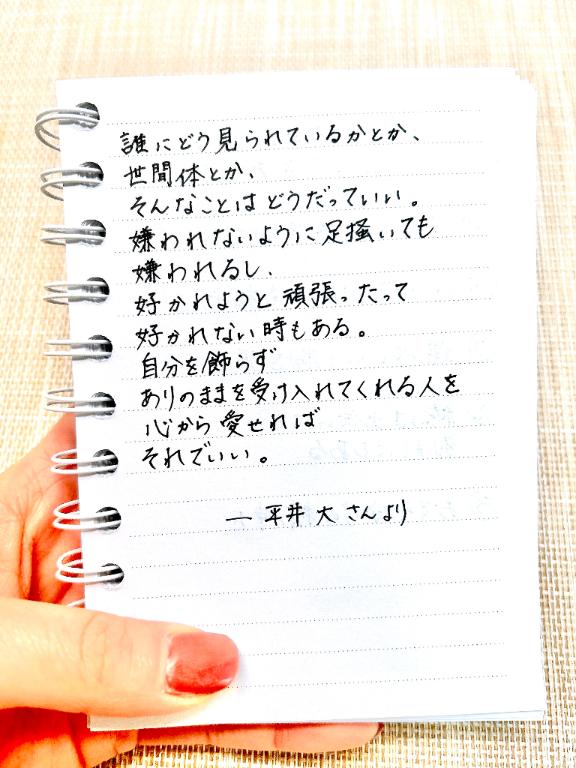 誰にどう見られているかとか、
世間体とか、
そんなことはどうだっていい。
嫌われないように足掻いても
嫌われるし、
好かれようと頑張ったって
好かれない時もある。
自分を飾らず
ありのままを受け入れてくれる人を
心から愛せれば
それでいい。
— 平井 大 さんより